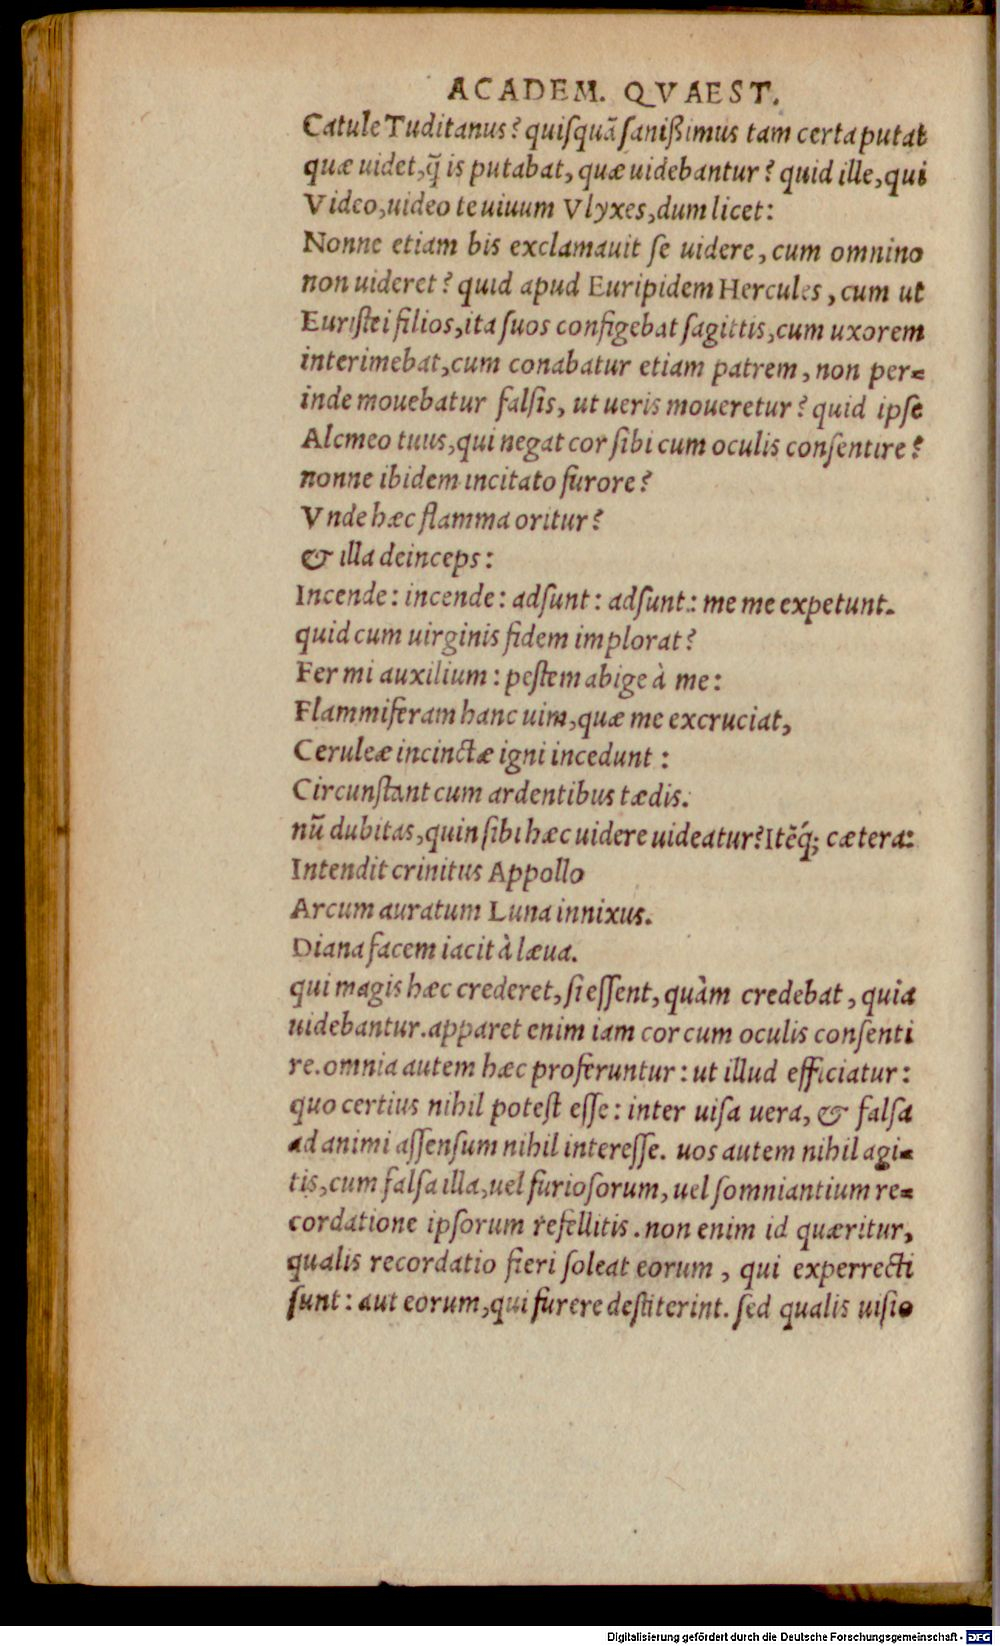 ACADEM. QVAEST.
Catule Tuditanus? quiſquã ſanißimus tam certa putat
quæ uidet, q̃ is putabat, quæ uidebantur? quid ille, qui
Video, uideo te uiuum Vlyxes, dum licet:
Nonne etiam bis exclamauit ſe uidere, cum omnino
non uideret? quid apud Euripidem Hercules, cum ut
Euriſtei filios, ita ſuos configebat ſagittis, cum uxorem
interimebat, cum conabatur etiam patrem, non per-
inde mouebatur falſis, ut ueris moueretur? quid ipſe
Alcmeo tuus, qui negat cor ſibi cum oculis conſentire?
nonne ibidem incitato furore?
Vnde hæc flamma oritur?
& illa deinceps:
Incende: incende: adſunt: adſunt: me me expetunt.
quid cum uirginis fidem implorat?
Fer mi auxilium: peſtem abige à me:
Flammiferam hanc uim, quæ me excruciat,
Ceruleæ incinctæ igni incedunt:
Circunſtant cum ardentibus tædis.
nũ dubitas, quin ſibi hæc uidere uideatur? Itẽq́; cætera:
Intendit crinitus Appollo
Arcum auratum Luna innixus.
Diana facem iacit à læua.
qui magis hæc crederet, ſi eſſent, quàm credebat, quia
uidebantur. apparet enim iam cor cum oculis conſenti
re. omnia autem hæc proferuntur: ut illud efficiatur:
quo certius nihil poteſt eſſe: inter uiſa uera, & falſa
ad animi aſſenſum nihil intereſſe. uos autem nihil agi-
tis, cum falſa illa, uel furioſorum, uel ſomniantium re-
cordatione ipſorum refellitis. non enim id quæritur,
qualis recordatio fieri ſoleat eorum, qui experrecti
ſunt: aut eorum, qui furere deſtiterint. ſed qualis uiſio
Digitalisierung gefördert durch die Deutsche Forschungsgemeinschaft - DFG